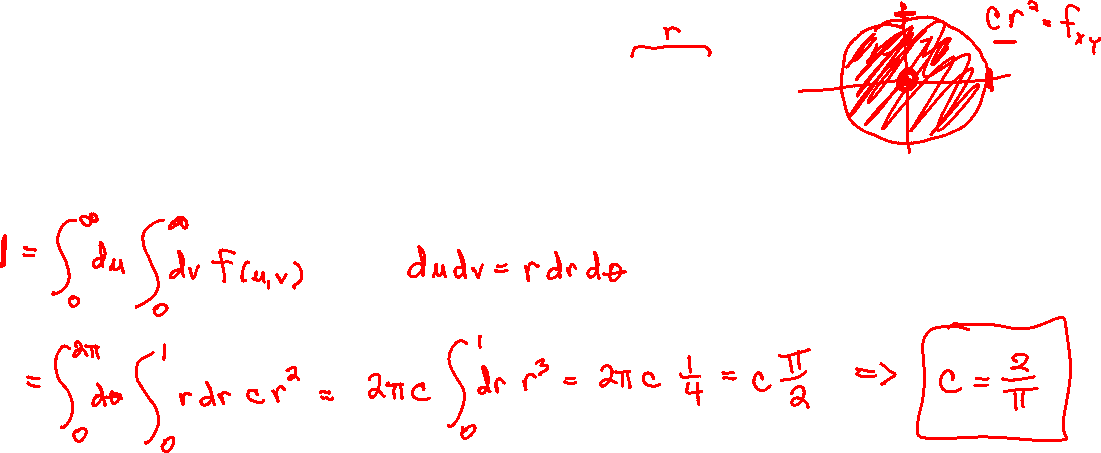 r
cr² = f_xy
1 = ∫₀^∞ du ∫₀^∞ dv f(u,v) du dv = r dr dθ
= ∫₀^2π dθ ∫₀^1 r dr c r² = 2πc ∫₀^1 dr r³ = 2πc 1/4 = c π/2 => c = 2/π